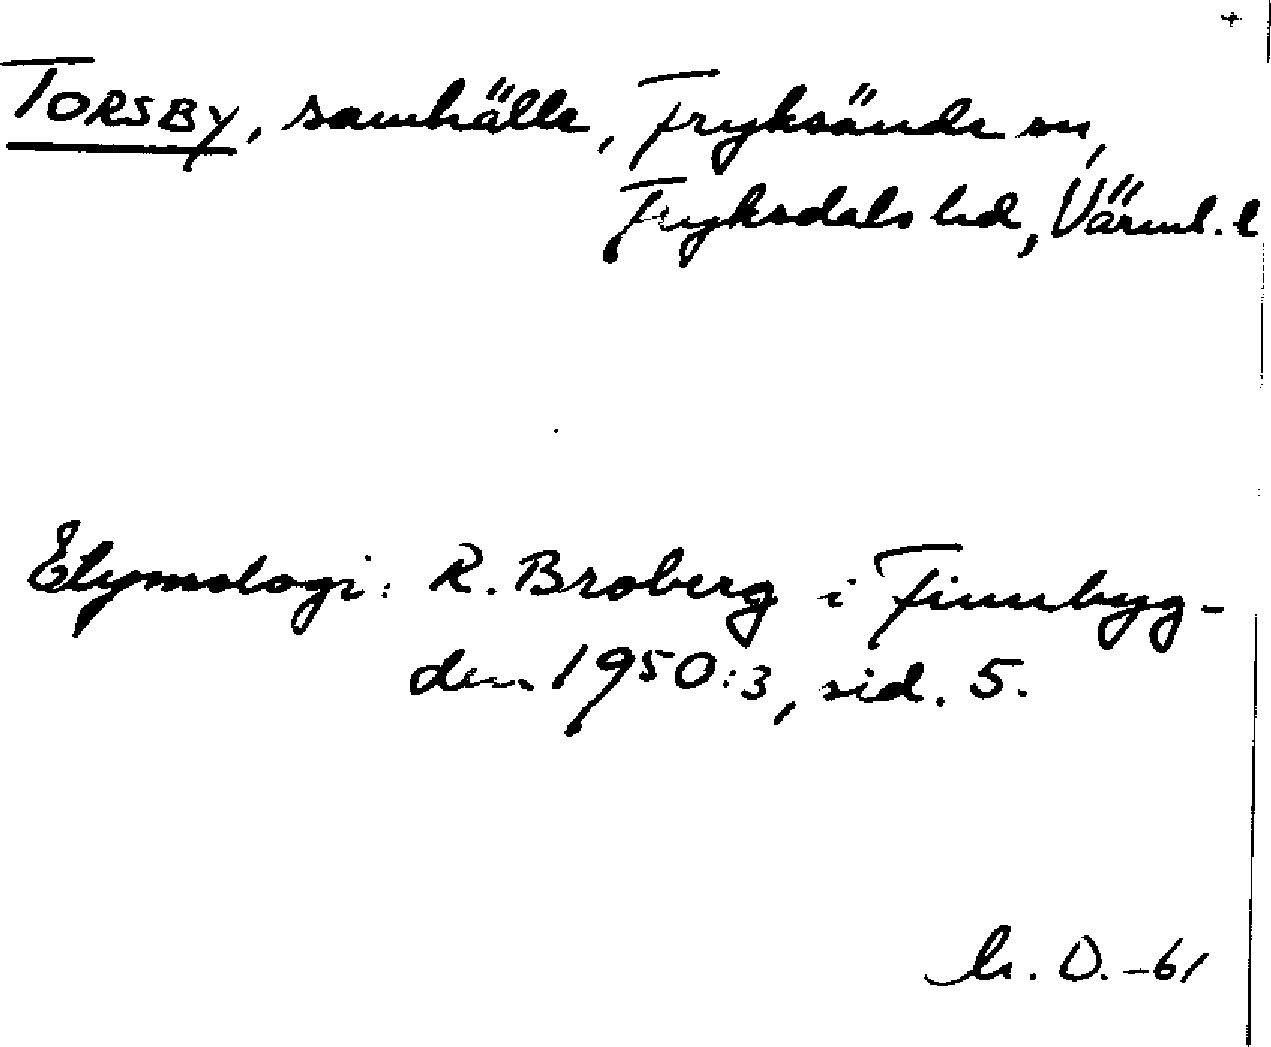 +
TORSBY, samhälle, Fryksände sn,
Fryksdals hd, Värml. l
Etymologi: R. Broberg i Finnbyg-
den 1950:3, sid. 5.
D. -61